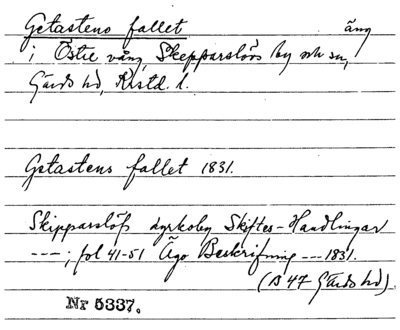 Getastens fallet äng
i Östre vång, Skepparslövs by och sn,
Gärds hd, Krstd. l.
Getastens fallet 1831.
Skipparslöfs kyrkoby Skiftes-Handlingar
---; fol 41-51 Ägo Beskrifning --- 1831.
(B 47 Gärds hd).
Nr 5337.